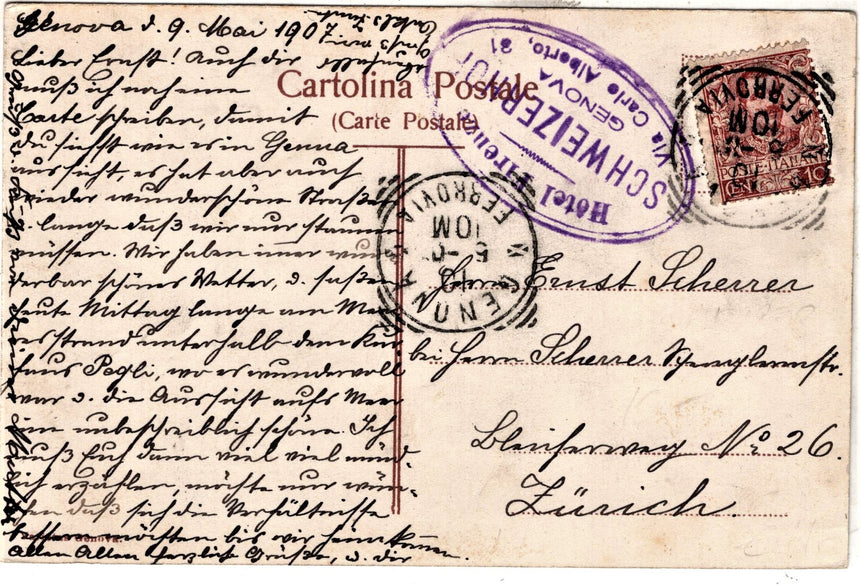 Genova d. 9. Mai 1907
Lieber Ernst! Auch dir
muß ich noch eine
Carte schreiben, damit
du siehst wie es in Genua
aussieht, es hat aber auch
wieder wunderschöne Straßen
lange daß wir nur staunen
müssen. Wir haben imer wun
derbar schönes Wetter, u. saßen
heute Mittag lange am Meer
esstrand unterhalb dem Kur
haus Pegli, wo es wundervoll
war u. die Aussicht aufs Meer
ist unbeschreiblich schön. Ich
muß Euch dann viel viel münd
lich erzählen, möchte nur wün
schen daß sich die Verhältnisse
bessern möchten bis wir heim kommen.
Allen Allen herzliche Grüße, u. dir
Cartolina Postale
(Carte Postale)
Hôtel
SCHWEIZER
GENOVA
Via Carlo Alberto, 21
GENOVA
FERROVIA
10M
FERROVIA
10M
POSTE ITALIANE
10
Herrn Ernst Scherrer
bei Herrn Scherrer Spenglermstr.
Bleicherweg No 26.
Zürich.